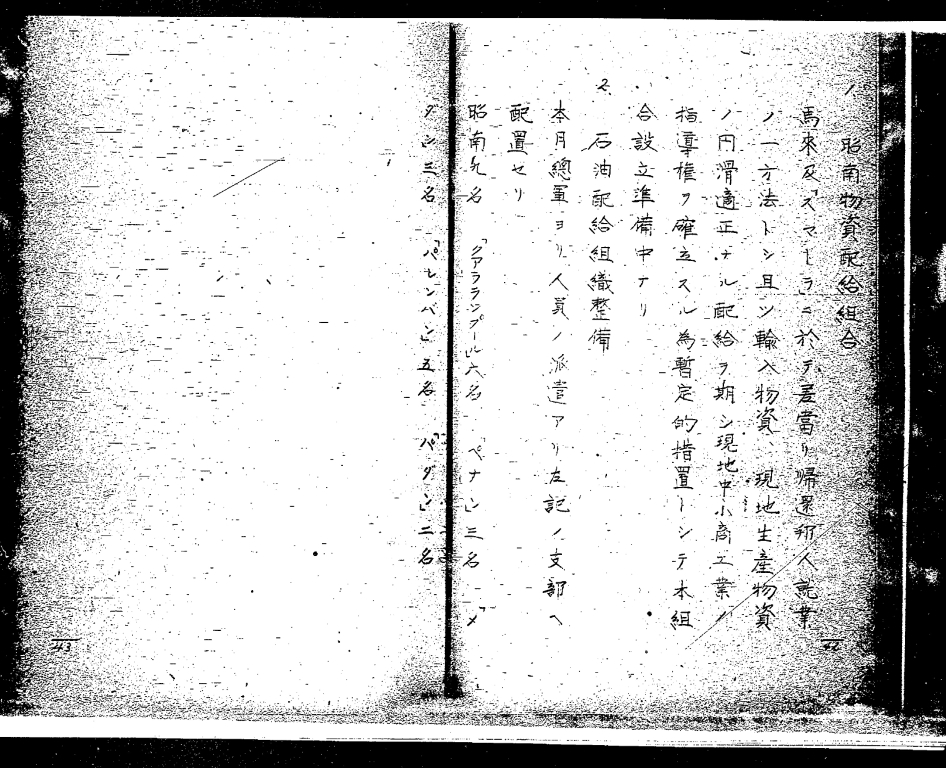 1
昭南物資配給組合
馬來及「スマトラ」ニ於テ差當リ帰還邦人就業
ノ一方法トシ且ツ輸入物資、現地生産物資
ノ円滑適正ナル配給ヲ期シ現地中小商工業ノ
指導権ヲ確立スル為暫定的措置トシテ本組
合設立準備中ナリ
2
石油配給組織整備
本月總軍ヨリ人員ノ派遣アリ左記ノ支部ヘ
配置セリ
昭南九名 「クアラランプール」六名 「ペナン」三名 「メ
ダン」三名 「パレンバン」五名 「パダン」二名
42
43